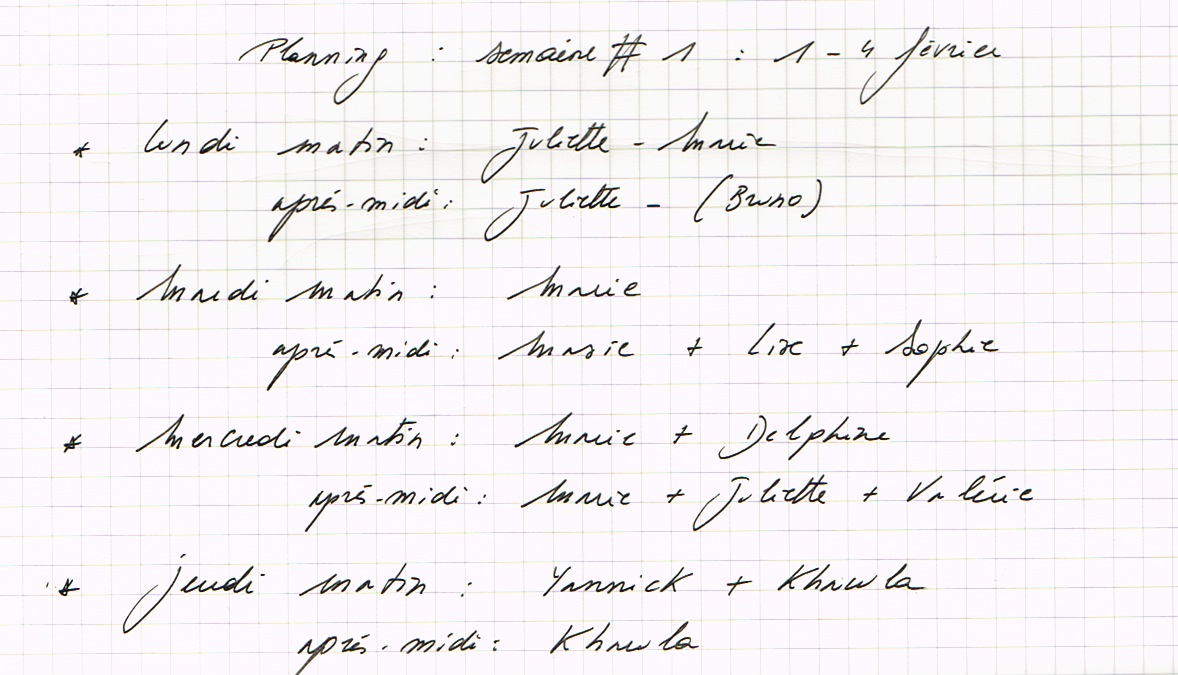 Planning : semaine # 1 : 1 - 4 février
* lundi matin : Juliette - Marie
après-midi : Juliette - (Bruno)
* Mardi matin : Marie
après-midi : Marie + Lise + Sophie
* Mercredi matin : Marie + Delphine
après-midi : Marie + Juliette + Valérie
* jeudi matin : Yannick + Khawla
après-midi : Khawla